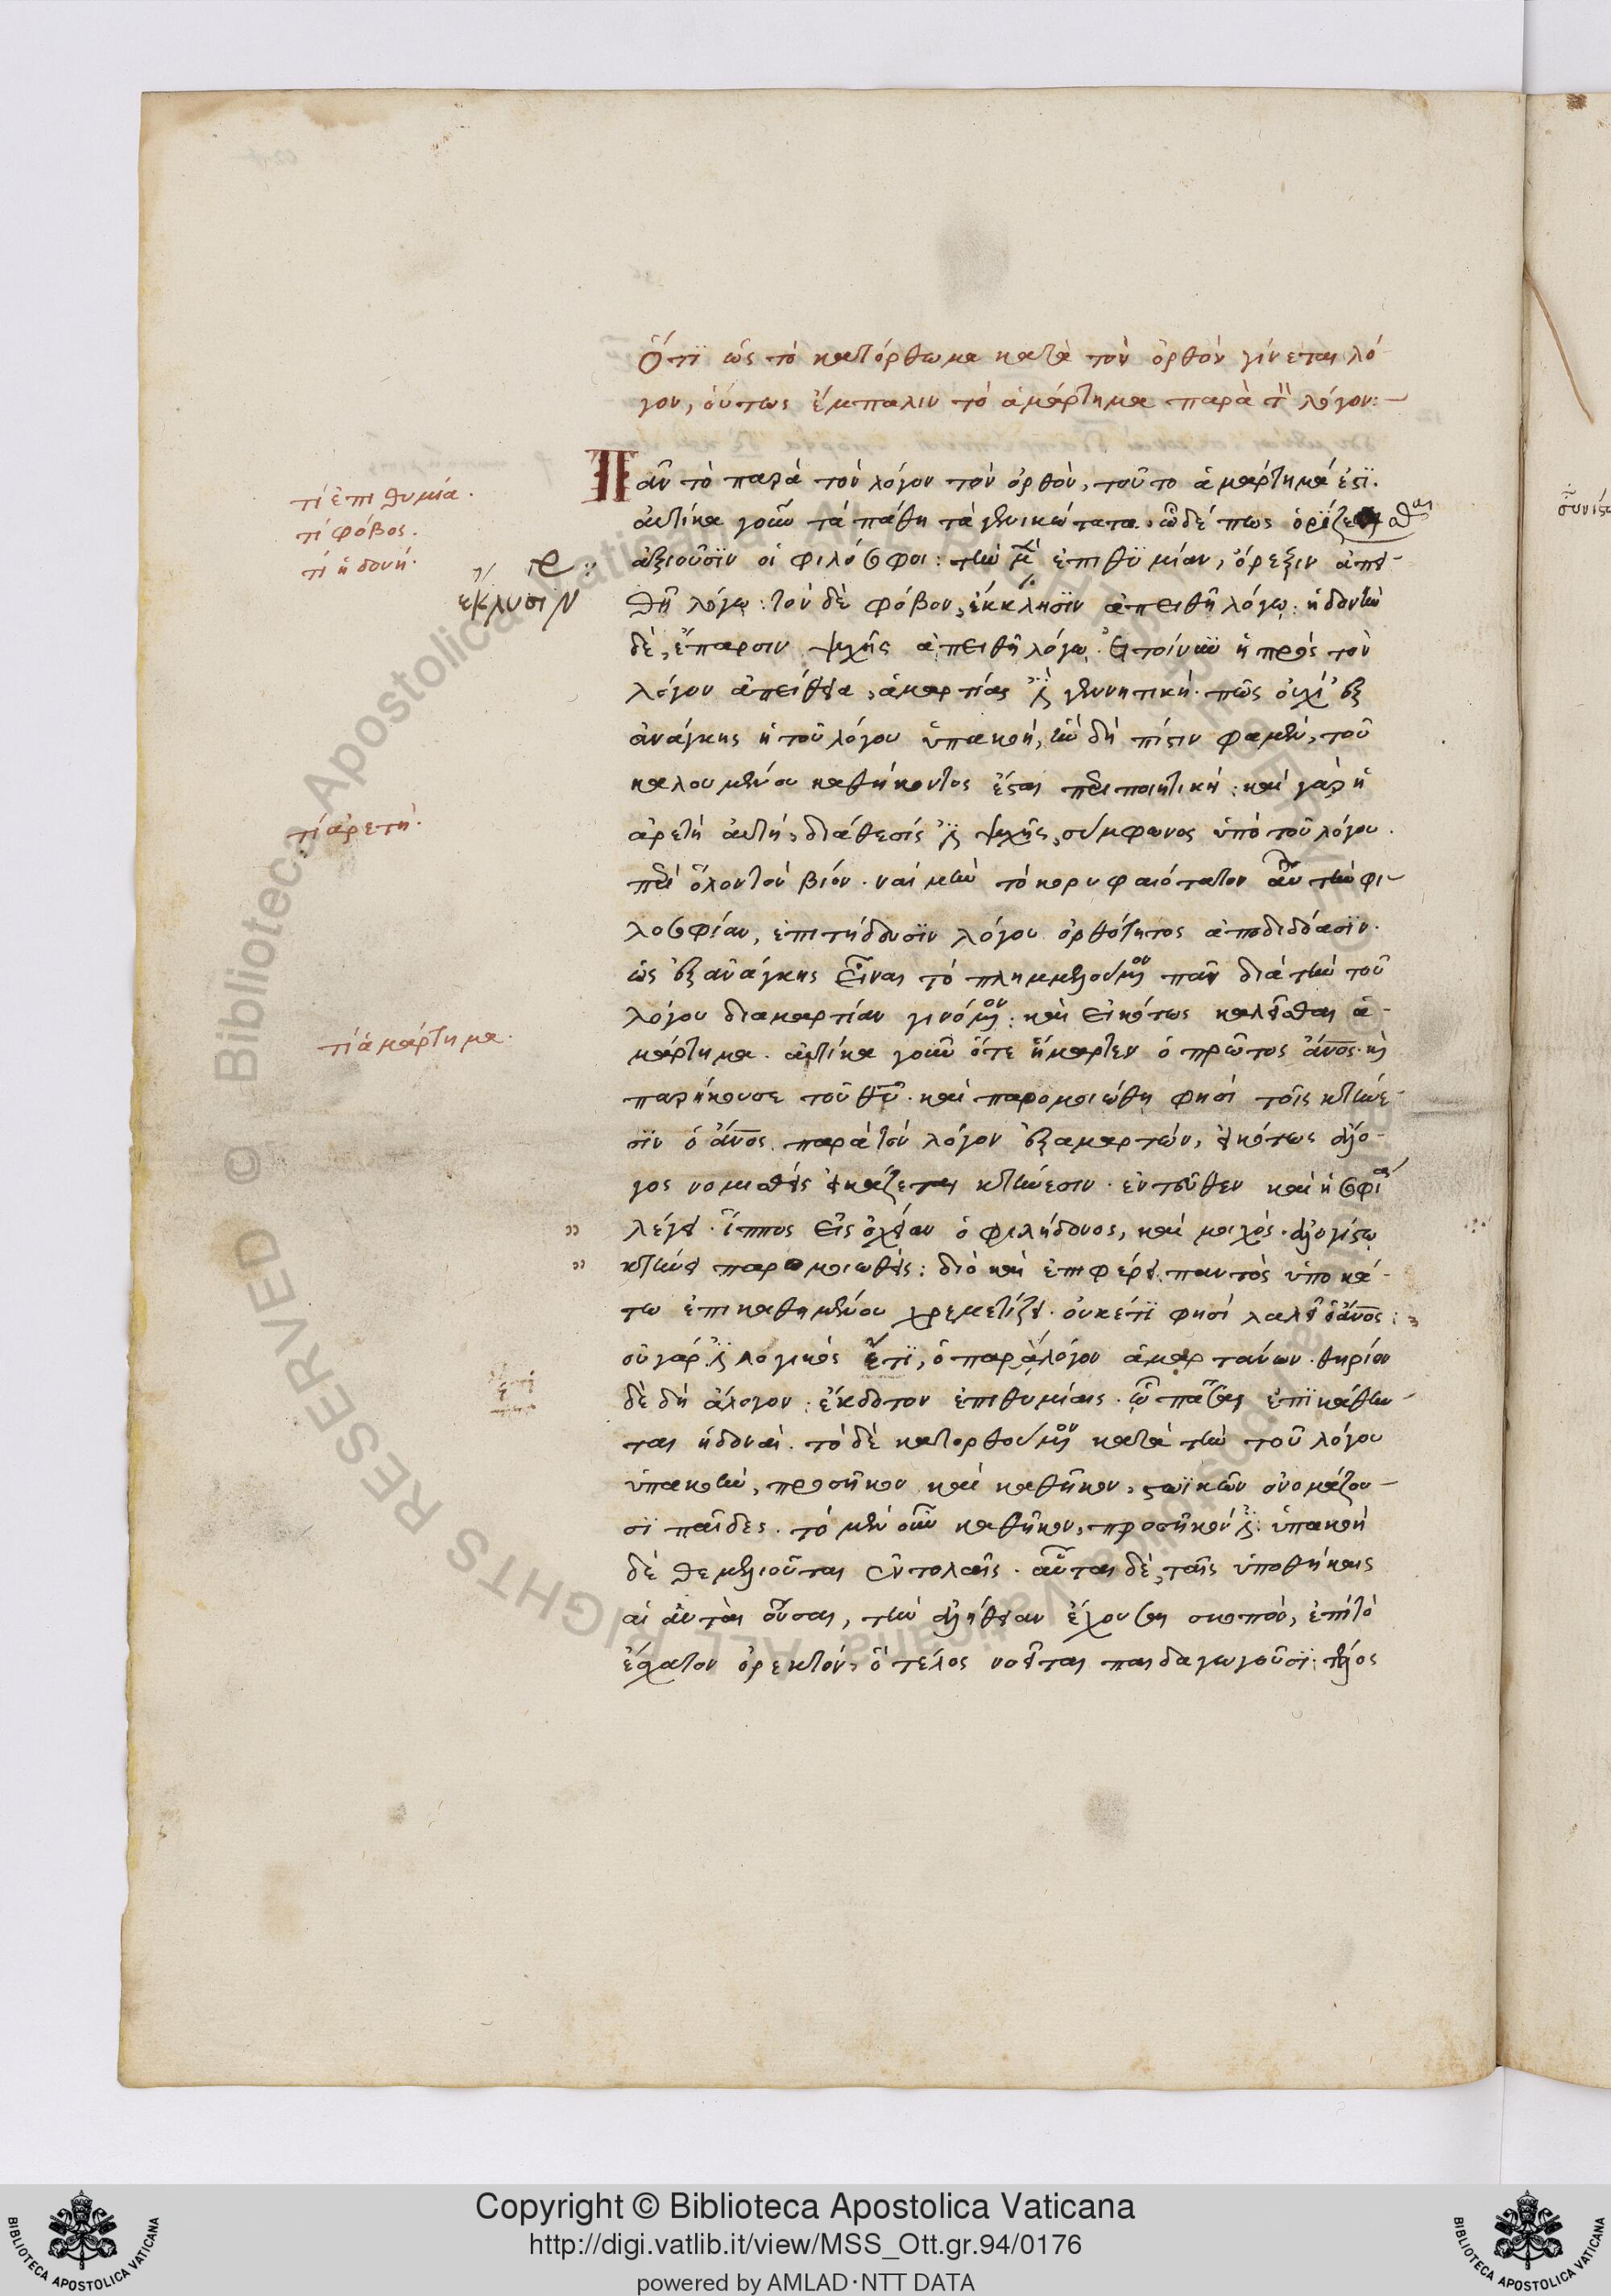 Ὅτι ὡς τὸ κατόρθωμα κατὰ τὸν ὀρθὸν γίνεται λό
γον, οὕτως ἔμπαλιν τὸ ἁμάρτημα παρὰ τὸν λόγον:—
Πᾶν τὸ παρὰ τὸν λόγον τὸν ὀρθὸν, τοῦτο ἁμάρτημά ἐστι.
τί ἐπιθυμία.
αὐτίκα γοῦν τὰ πάθη τὰ γενικώτατα, ὧδέ πως ὁρίζεσθαι
τί φόβος.
ἀξιοῦσιν οἱ φιλόσοφοι: τὴν μὲν ἐπιθυμίαν, ὄρεξιν ἀπει-
τί ἡδονή.
θῆ λόγῳ: τὸν δὲ φόβον, ἔκκλησιν ἀπειθῆ λόγῳ: ἡδονὴν
ἔκκλυσιν
δὲ, ἔπαρσιν ψυχῆς ἀπειθῆ λόγῳ. εἰ τοίνυν ἡ πρὸς τὸν
λόγον ἀπείθεια, ἁμαρτίας ἐστὶ γεννητική. πῶς οὐχὶ ἐξ
ἀνάγκης ἡ τοῦ λόγου ὑπακοή, ἣν δὴ πίστιν φαμὲν, τοῦ
καλουμένου καθήκοντος ἔσται περιποιητική: καὶ γὰρ ἡ
τί ἀρετή.
ἀρετὴ αὐτὴ, διάθεσίς ἐστι ψυχῆς, σύμφωνος ὑπὸ τοῦ λόγου.
περὶ ὅλον τὸν βίον. ναὶ μὴν τὸ κορυφαιότατον αὖ τὴν φι-
λοσοφίαν, ἐπιτήδευσιν λόγου ὀρθότητος ἀποδιδόασιν.
ὡς ἐξ ἀνάγκης εἶναι τὸ πλημμελούμενον πᾶν διὰ τὴν τοῦ
λόγου διαμαρτίαν γινόμενον: καὶ εἰκότως καλεῖσθαι ἁ-
τί ἁμάρτημα.
μάρτημα. αὐτίκα γοῦν ὅτε ἥμαρτεν ὁ πρῶτος ἄνος. καὶ
παρήκουσε τοῦ θῦ. καὶ παρομοιώθη φησὶ τοῖς κτήνε-
σιν ὁ ἄνος παρὰ τὸν λόγον ἐξαμαρτών, εἰκότως ἄλο-
γος νομισθεὶς εἰκάζεται κτήνεσιν. ἐντεῦθεν καὶ ἡ σοφία
λέγει. ἵππος εἰς ὀχείαν ὁ φιλήδονος, καὶ μοιχὸς. ἀλογίστῳ
κτήνει παρομοιωθεὶς: διὸ καὶ ἐπιφέρει. παντὸς ὑποκά-
τω ἐπικαθημένου χρεμετίζει. οὐκέτι φησὶ λαλεῖ ὁ ἄνος:
οὐ γάρ ἐστι λογικὸς ἔτι, ὁ παρὰ λόγον ἁμαρτάνων. θηρίον
δὲ δὴ ἄλογον: ἔκδοτον ἐπιθυμίαις. ᾧ πᾶσαι ἐπικάθην-
ται ἡδοναί. τὸ δὲ κατορθούμενον κατὰ τὴν τοῦ λόγου
ὑπακοὴν, προσῆκον καὶ καθῆκον, στωϊκῶν ὀνομάζου-
σι παῖδες. τὸ μὲν οὖν καθῆκον, προσῆκόν ἐστι: ὑπακοὴ
δὲ θεμελιοῦται ἐντολαῖς. αὗται δὲ, ταῖς ὑποθήκαις
αἱ αὐταὶ οὖσαι, τὴν ἀλήθειαν ἔχουσαι σκοπὸν, ἐπὶ τὸ
ἔσχατον ὀρεκτὸν, ὃ τέλος νοεῖται παιδαγωγοῦσι: τέλος
Copyright © Biblioteca Apostolica Vaticana
http://digi.vatlib.it/view/MSS_Ott.gr.94/0176
powered by AMLAD·NTT DATA
BIBLIOTECA APOSTOLICA VATICANA
BIBLIOTECA APOSTOLICA VATICANA